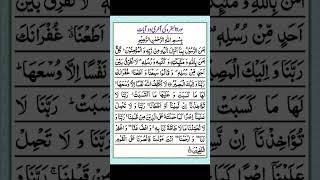 سورۃ البقرہ کی آخری دو آیات
بِسْمِ اللهِ الرَّحْمٰنِ الرَّحِيْمِ
اٰمَنَ الرَّسُوْلُ بِمَاۤ اُنْزِلَ اِلَيْهِ مِنْ رَّبِّهٖ وَالْمُؤْمِنُوْنَ كُلٌّ
اٰمَنَ بِاللهِ وَمَلٰٓئِكَتِهٖ وَكُتُبِهٖ وَرُسُلِهٖ لَا نُفَرِّقُ بَيْنَ
اَحَدٍ مِّنْ رُّسُلِهٖ وَقَالُوْا سَمِعْنَا وَاَطَعْنَا غُفْرَانَكَ
رَبَّنَا وَاِلَيْكَ الْمَصِيْرُ لَا يُكَلِّفُ اللهُ نَفْسًا اِلَّا وُسْعَهَا
لَهَا مَا كَسَبَتْ وَعَلَيْهَا مَا اكْتَسَبَتْ رَبَّنَا لَا
تُؤَاخِذْنَاۤ اِنْ نَّسِيْنَاۤ اَوْ اَخْطَاْنَا رَبَّنَا وَلَا تَحْمِلْ
عَلَيْنَاۤ اِصْرًا كَمَا حَمَلْتَهٗ عَلَى الَّذِيْنَ مِنْ قَبْلِنَا رَبَّنَا
وَلَا تُحَمِّلْنَا مَا لَا طَاقَةَ لَنَا بِهٖ وَاعْفُ عَنَّا وَاغْفِرْ
لَنَا وَارْحَمْنَا اَنْتَ مَوْلٰىنَا فَانْصُرْنَا عَلَى الْقَوْمِ
الْكٰفِرِيْنَ